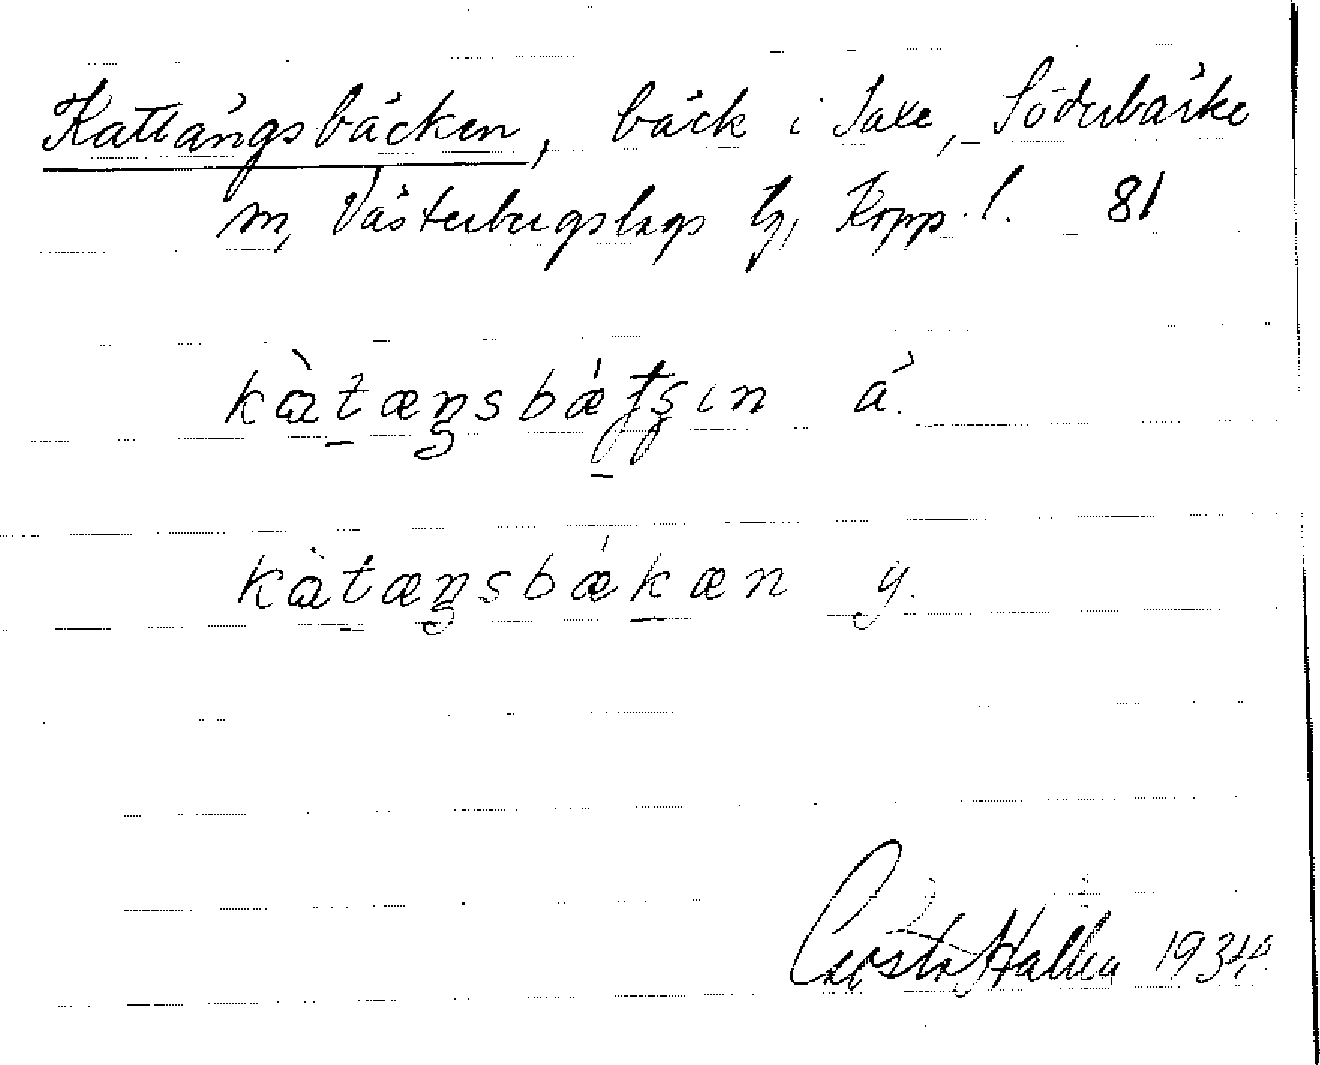 Kattängsbäcken, bäck i Saxe, Söderbärke
sn, Västerbergslags tg, Kopp. l. 81
kàtæŋsbǽtʂın ä.
kàtæŋsbǽkæn y.
Gösta Hallen 1934.